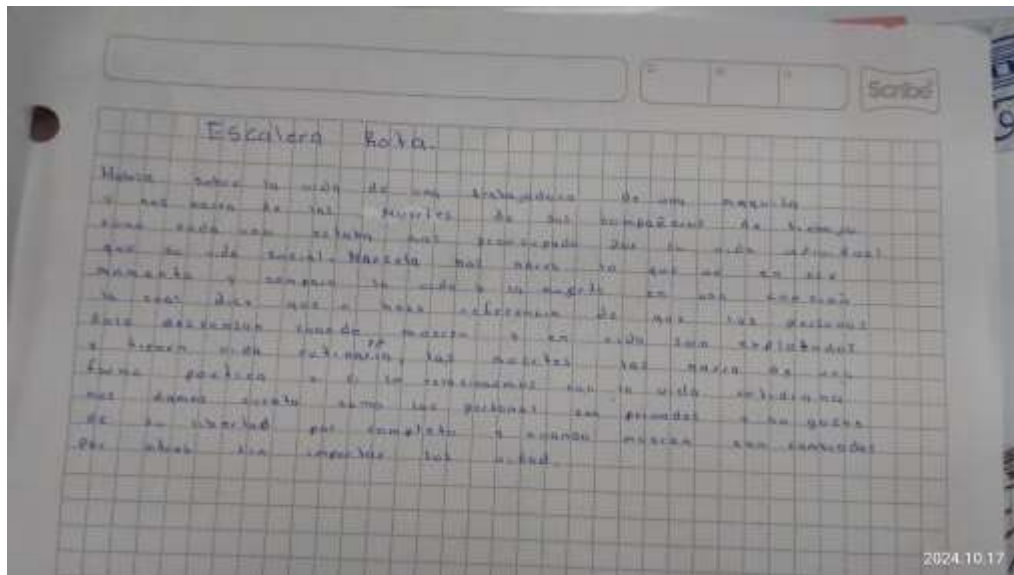 Scribe
Escalera Rota.
Habla sobre la vida de una trabajadora de una maquila
y nos narra de las muertes de sus compañeros de trabajo
como cada uno estaba mas preocupado por su vida
que su vida social. Marcela nos narra lo que es en ese
momento y compara la vida y la muerte en una
la cual dice que o hace referencia de que las personas
solo descansan cuando mueren y en vida son explotados
y tienen vida rutinaria, las muertes las narra de una
forma poetica y si lo relacionamos con la vida cotidiana
nos damos cuenta como las personas son privadas y no gozan
de su libertad por completo y cuando mueren son
por otros sin importar sus
2024.10.17